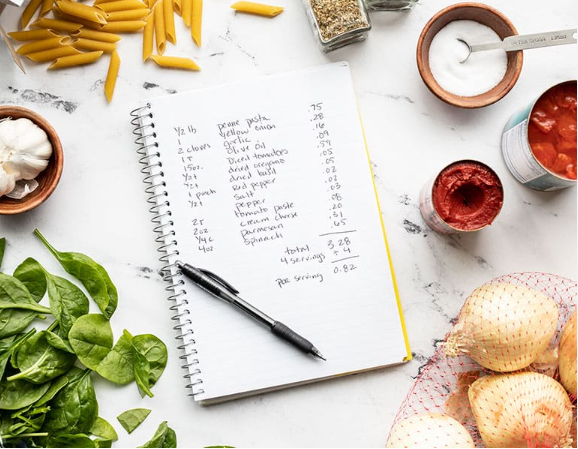 ½ lb penne pasta .75
1 yellow onion .28
2 cloves garlic .16
1 T olive oil .09
15oz. Diced tomatoes .59
½t dried oregano .05
½t dried basil .05
1 pinch Red pepper .02
½t salt .02
pepper .03
2T tomato paste .08
2oz cream cheese .20
¼ c parmesan .31
4oz spinach .65
total 3.28
4 servings ÷ 4
per serving 0.82